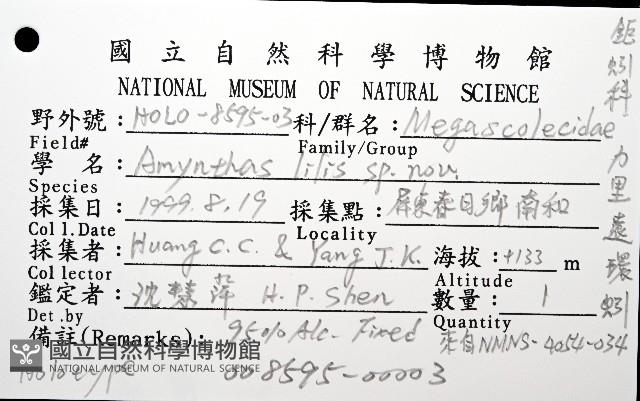 國立自然科學博物館
NATIONAL MUSEUM OF NATURAL SCIENCE
野外號：HOLO-8595-03 科/群名：Megascolecidae
Field# Family/Group
學 名：Amynthas lilis sp. nov.
Species
採集日：1999.8.19 採集點：屏東春日鄉南和
Coll.Date Locality
採集者：Huang C.C. & Yang J.K. 海拔：+133 m
Collector Altitude
鑑定者：沈慧萍 H.P. Shen 數量：1
Det.by Quantity
備註(Remarks)： 95% Alc. Fixed 來自NMNS-4054-034
Holotype 008595-00003
鉅蚓科 力里遠環蚓
國立自然科學博物館
NATIONAL MUSEUM OF NATURAL SCIENCE